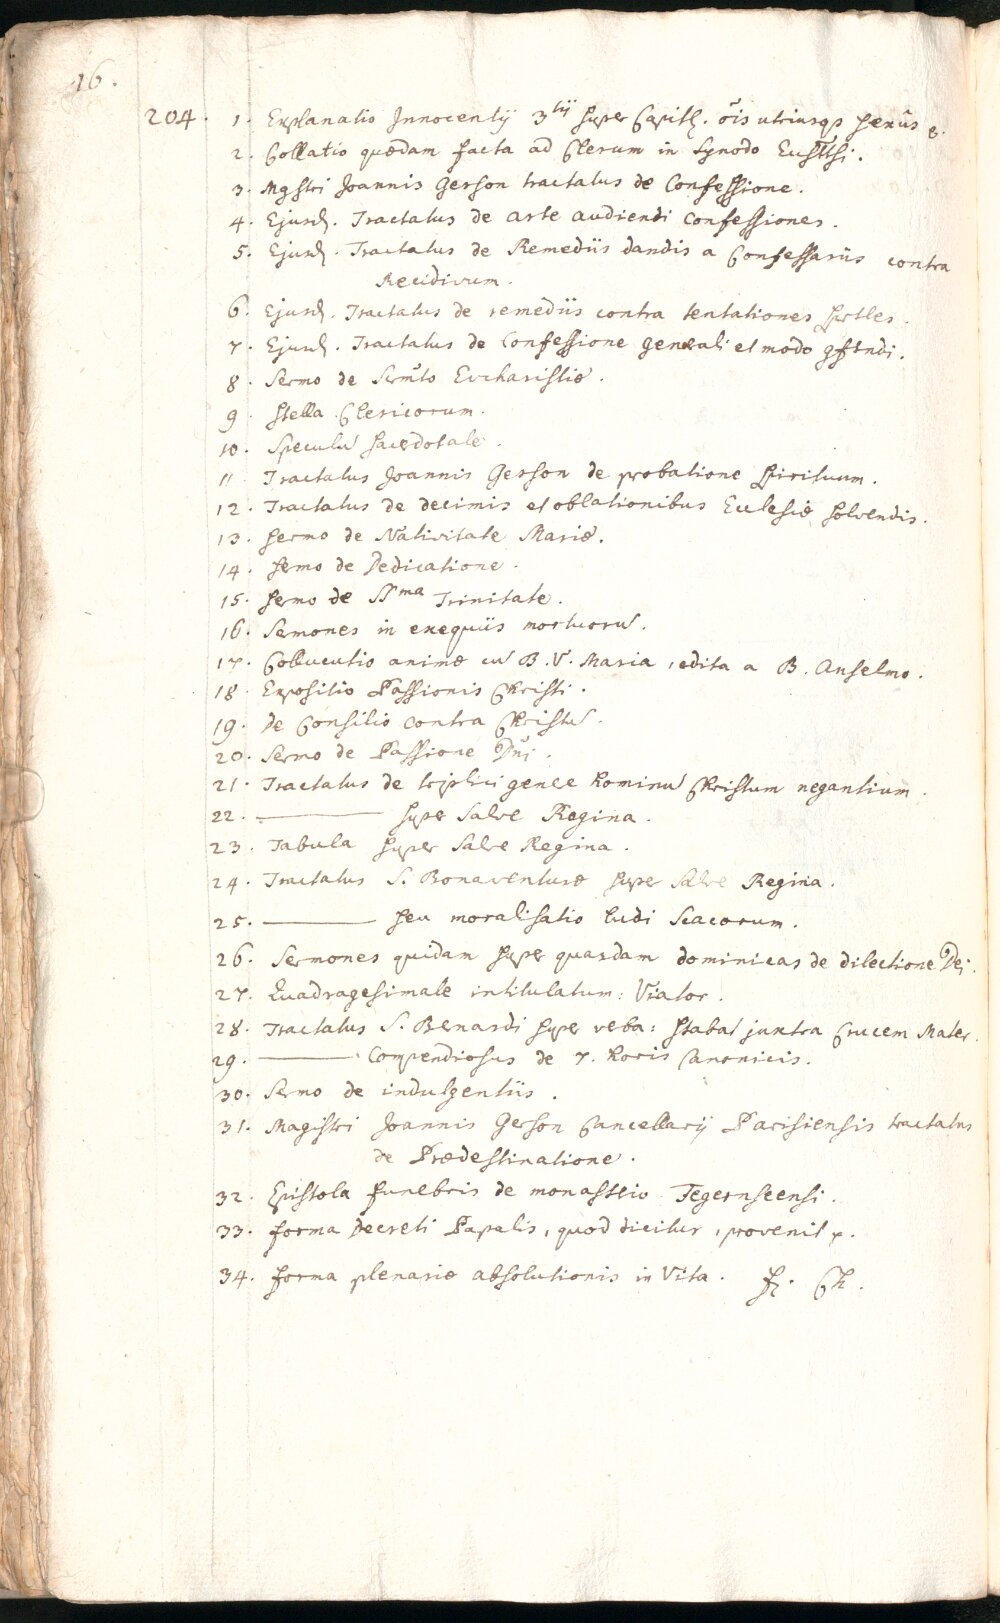 16.
204. 1. Explanatio Innocentij 3tij super Capitl. õis utriusqs sexûs &.
2. Collatio quædam facta ad Clerum in Synodo Eusttsi.
3. Mgstri Joannis Gerson tractatus de Confessione.
4. Ejusd. Tractatus de arte audiendi confessiones.
5. Ejusd. Tractatus de Remediis dandis a Confessariis contra
Recidivum.
6. Ejusd. Tractatus de remediis contra tentationes
7. Ejusd. Tractatus de Confessione generali et modo
8. Sermo de Srmto Eucharistiæ.
9. Stella Clericorum.
10. Speculũ sacerdotale.
11. Tractatus Joannis Gerson de probatione spirituum.
12. Tractatus de decimis et oblationibus Ecclesiæ solvendis.
13. Sermo de Nativitate Mariæ.
14. Sermo de Dedicatione.
15. Sermo de SSma Trinitate.
16. Sermones in exequiis mortuorũ.
17. Collucutio animæ cũ B. V. Maria, edita a B. Anselmo.
18. Expositio Passionis Christi.
19. De Consilio contra Christũ.
20. Sermo de Passione Dñi.
21. Tractatus de triplici genere hominũ Christum negantium.
22. ——— super Salve Regina.
23. Tabula super Salve Regina.
24. Tractatus S. Bonaventuræ super Salve Regina.
25. ——— seu moralisatio ludi Scacorum.
26. Sermones quidam super quasdam dominicas de dilectione Dei.
27. Quadragesimale intitulatum: Viator.
28. Tractatus S. Bernardi super verba: stabat juxtra Crucem Mater.
29. ——— Compendiosus de 7. horis Canonicis.
30. Sermo de indulgentiis.
31. Magistri Joannis Gerson Cancellarij Parisiensis tractatus
de Prædestinatione.
32. Epistola funebris de monasterio Tegernseensi.
33. forma Decreti Papalis, quod dicitur, provenit
34. forma plenariæ absolutionis in Vita. Ch.